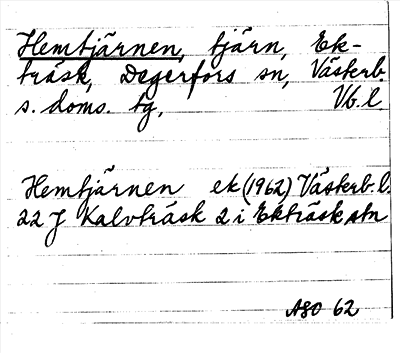 Hemtjärnen, tjärn, Ek-
träsk, Degerfors sn, Västerb.
s. doms. tg, Vb. l.
Hemtjärnen ek (1962) Västerb. l.
22 J Kalvträsk 2 i Ekträsk stn
ASO 62